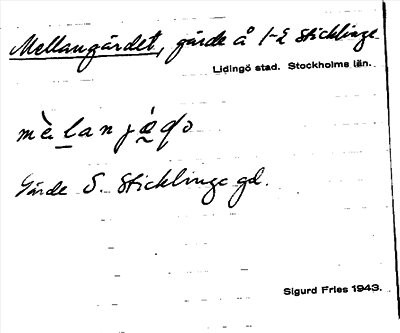 Mellangärdet, gärde å 1-2 Sticklinge.
Lidingö stad. Stockholms län.
Gärde S. Sticklinge gd.
Sigurd Fries 1943.